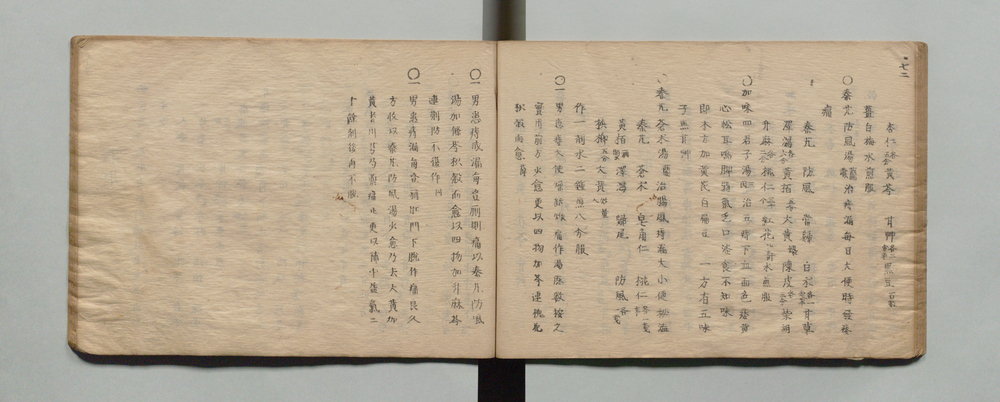 七二
杏仁 黃芩 甘艸
薑白梅水煎服
○秦艽防風湯 治痔漏每日大便時發疼
痛
秦艽 防風 當歸 白朮 甘草
澤瀉 黃栢 大黃 陳皮 柴胡
升麻 桃仁 紅花 水煎服
○加味四君子湯 治五痔下血面色痿黃
心忪耳鳴脚弱氣乏口淡食不知味
即本方加黃芪白扁豆 一方有五味
子無甘艸
秦艽蒼朮湯 治腸風痔漏大小便秘澁
秦艽 蒼朮 皂角仁 桃仁
黃栢 澤瀉 歸尾 防風
檳榔 大黃
作一劑水二鍾煎八分服
○一男患痔大便燥結焮痛作渴脉數按之
實用前方少愈更以四物加芩連
枳殼而愈
○一男患痔成漏每登厠則痛以秦艽防風
湯加條芩枳殼而愈以四物加升麻芩
連荊防不復作
○一男患痔漏每登厠肛門下脫作痛良久
方收以秦艽防風湯少愈乃去大黃加
黃芪川芎芍藥痛止更以補中益氣二
十餘劑後再不脫